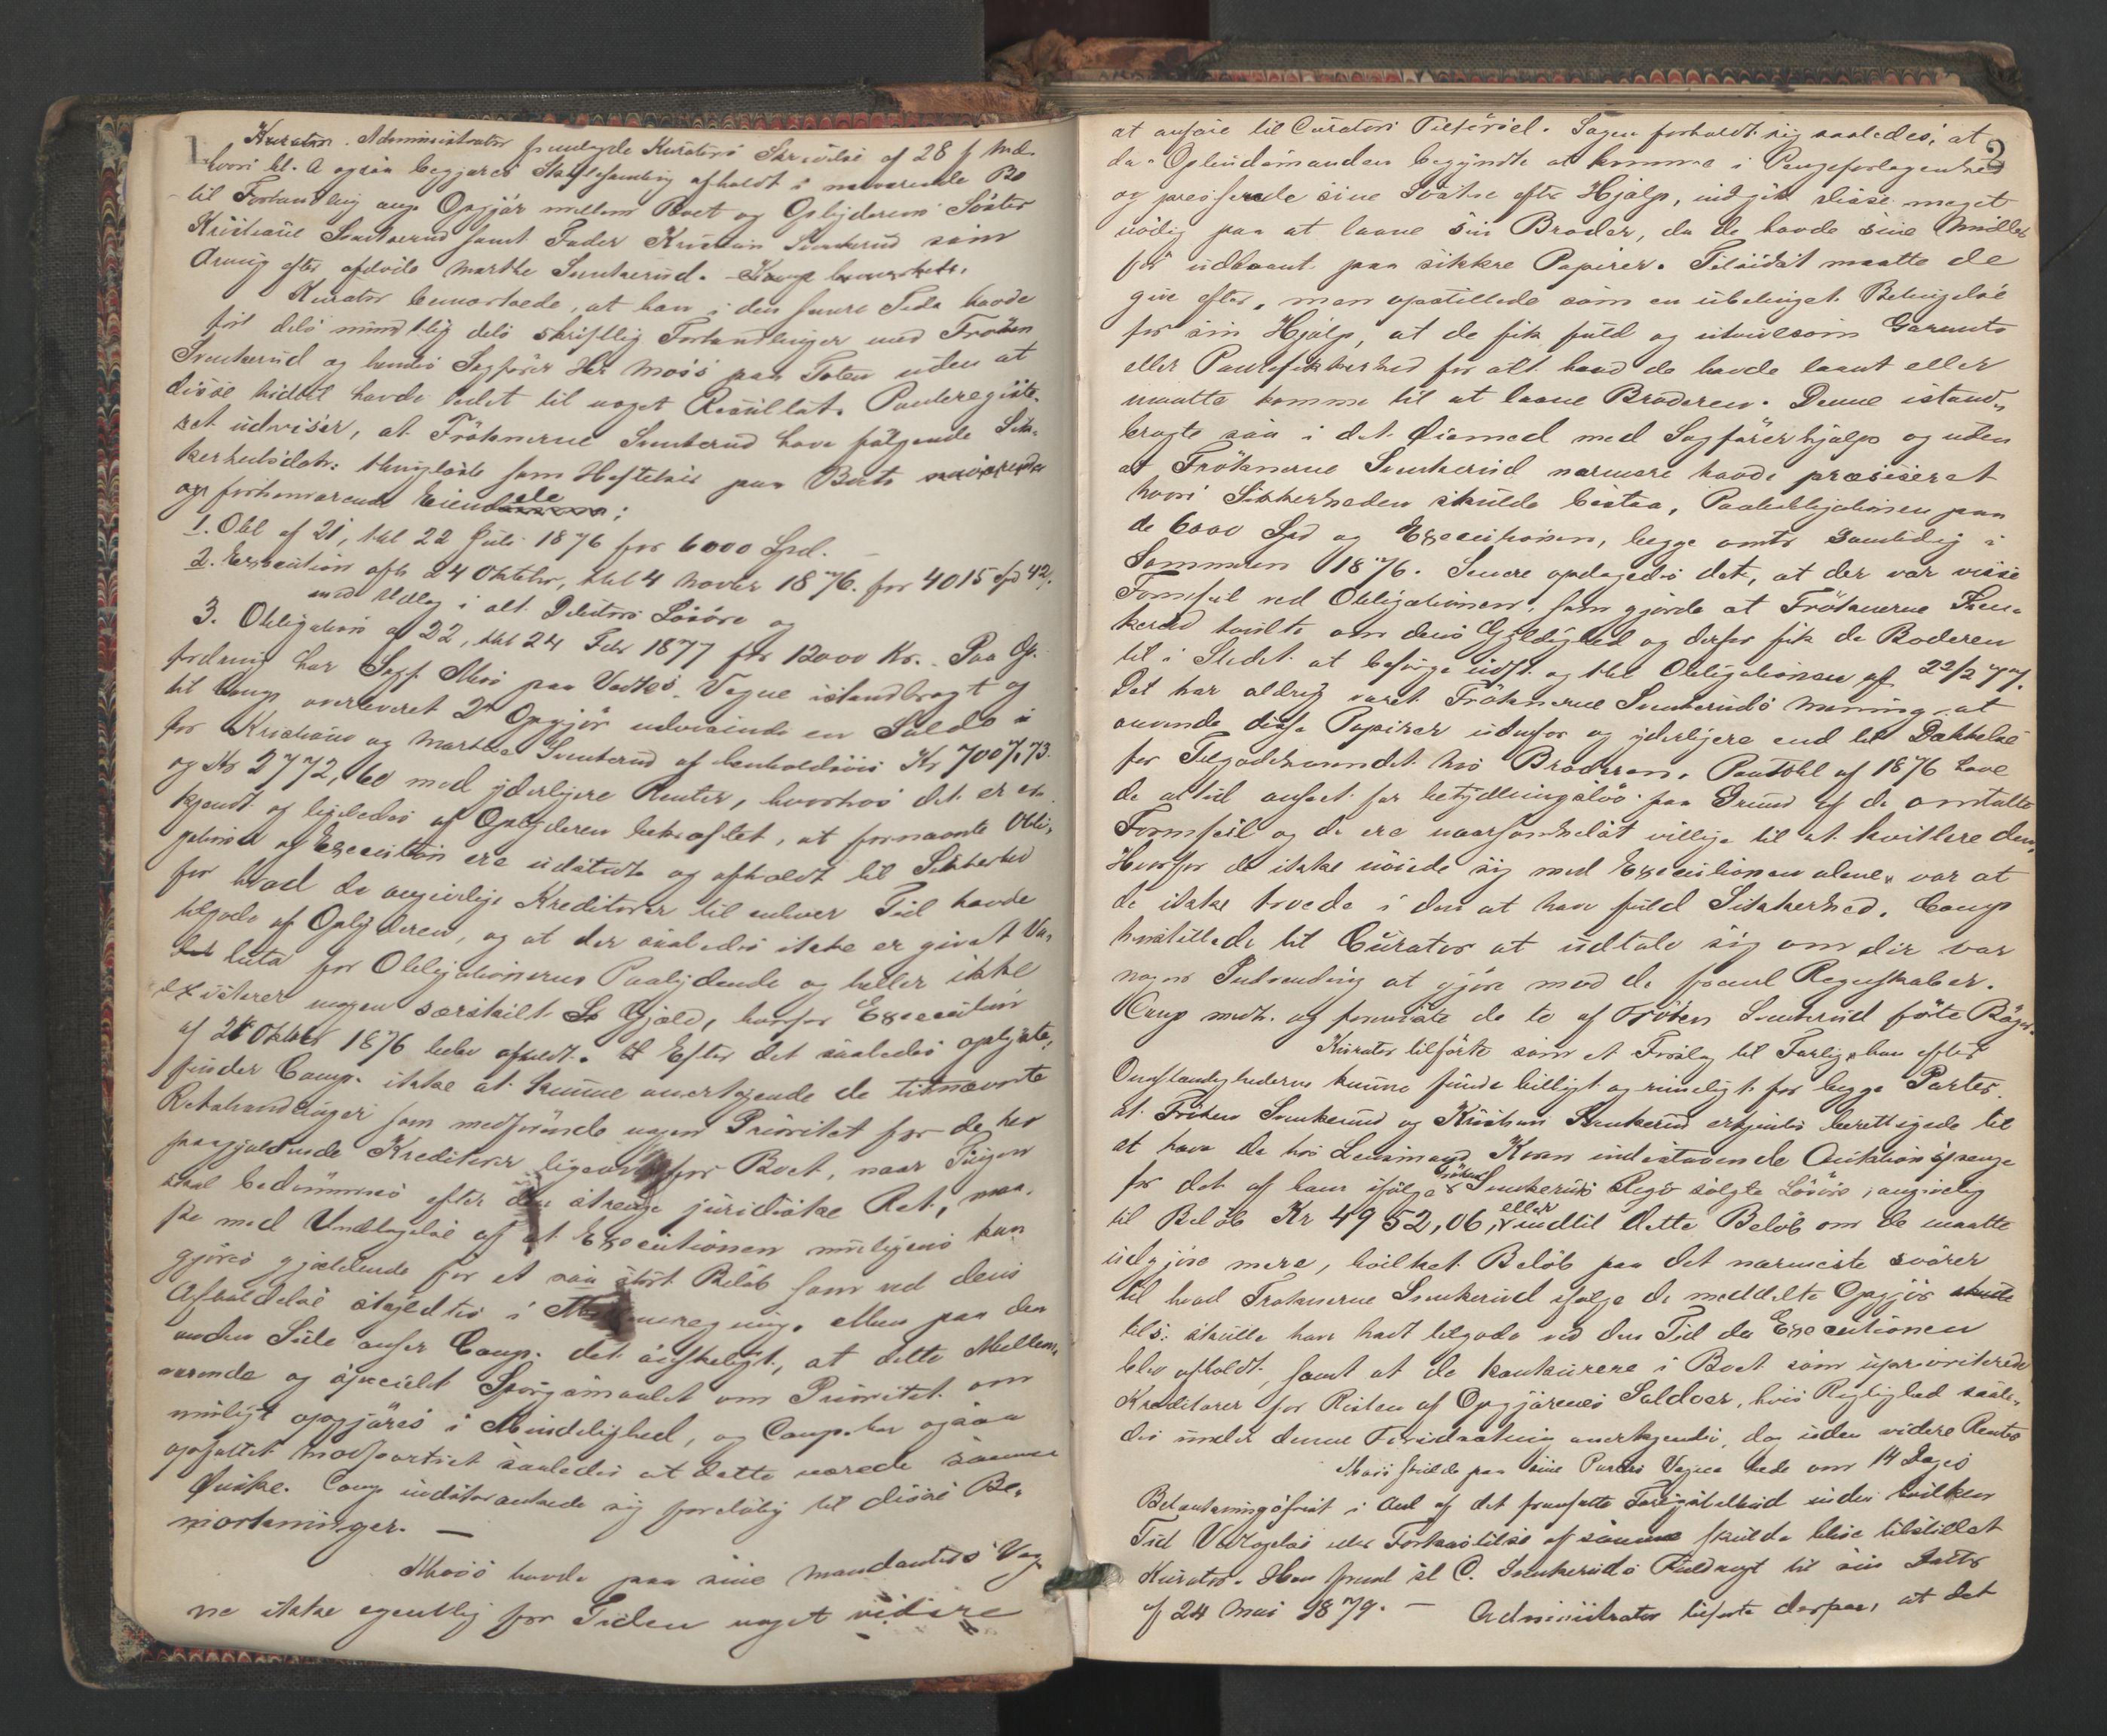 1
Administrator fremlagde Kurators Skrivelse af 28 f. Md.
hvori bl. A ogsaa begjæres Skiftesamling afholdt i nærværende Bo
til Forhandling ang. Opgjør mellem Boet og Opbyderens Søster
Kristiane Svenkerud samt Fader Kristian Svenkerud som
Arving efter afdøde Marthe Svenkerud.
Kurator bemærkede, at han i den senere Tid havde
ført dels mundtlig dels skriftlig Forhandlinger med Frøken
Svenkerud og hendes Sagfører Hr Moss paa Toten uden at
disse hidtil havde ledet til noget Resultat. Panteregiste-
ret udviser, at Frøknerne Svenkerud have følgende Sik-
kerhedsdok. thinglæste som Heftelser paa Boets nuværende
og forhenværende Eiendele:
1. Obl af 21, thl 22 Juli 1876 for 6000 Spd.
2. Execution afh 24 Oktober, thl 4 Novbr 1876 for 4015 Spd 42,
med Udlæg i alt Debitors Løsøre og
3. Obligation af 22, thl 24 Febr 1877 for 12000 Kr. Paa Op-
fordring har Sagf. Moss paa Vedkes. Vegne istandbragt og
til Comp. overleveret 2de Opgjør udvisende en Saldo
for Kristiane og Marthe Svenkerud af henholdsvis Kr 7007,73
og Kr 2772,60 med yderligere Renter, hvorhos det er er-
kjendt og ligeledes af Opbyderen bekræftet, at fornævnte Obli-
gationer og Execution ere udstedte og afholdt til Sikkerhed
for hvad de angivelige Kreditorer til enhver Tid havde
tilgode af Opbyderen, og at der saaledes ikke er givet Va-
luta for Obligationernes Paalydende og heller ikke
existerer nogen særskilt Gjæld, hvorfor Execution
af 24 Oktober 1876 blev afholdt. Efter det saaledes oplyste,
finder Comp. ikke at kunne anerkjende de titnævnte
Retshandlinger som medførende nogen Prioritet for de her
paagjældende Kreditorer ligeoverfor Boet, naar Sagen
skal bedømmes efter den strenge juridiske Ret, maa-
ske med Undtagelse af at Executionen muligens kan
gjøres gjældende for et saa stort Beløb som ved dens
Afholdelse skyldtes i Mellemregning. Men paa den
anden Side anser Comp. det ønskeligt, at dette Mellem-
værende og specielt Spørgsmaalet om Prioritet om
muligt opgjøres i Mindelighed, og Comp. har ogsaa
opfattet Modpartiet saaledes at dette nærede samme
Ønske. Comp indskrænkede sig foreløbig til disse Be-
mærkninger. —
Moss havde paa sine Mandanters Veg-
ne ikke egentlig for Tiden noget videre
2
at anføre til Curators Tilførsel. Sagen forholdt sig saaledes, at
da Opbudsmanden begyndte at komme i Pengeforlegenhed
og pressede sine Søstre efter Hjælp, indgik disse meget
nødig paa at laane sin Broder, da de havde sine Midler
før udlaant paa sikkre Papirer. Tilsidst maatte de
give efter, men opstillede som en ubetinget Betingelse
for sin Hjælp, at de fik fuld og utvivlsom Garanti
eller Pantesikkerhed for alt hvad de havde laant eller
maatte komme til at laane Broderen. Denne istand-
bragte saa i det Øiemed med Sagførerhjælp og uden
at Frøknerne Svenkerud nærmere havde præciseret
hvori Sikkerheden skulde bestaa, Panteobligationen paa
de 6000 Spd og Executionen, begge omtr samtidig i
Sommeren 1876. Senere opdagedes det, at der var visse
Formfeil ved Obligationen, som gjorde at Frøknerne Sven-
kerud tvilte om dens Gyldighed og derfor fik de Broderen
til i Stedet at besørge udst. og thl Obligationen af 22/2 77.
Det har aldrig været Frøknerne Svenkeruds Mening at
anvende disse Papirer udenfor og yderligere end til Dækkelse
for Tilgodehavendet hos Broderen. Pantobl af 1876 have
de altid anseet for betydningsløs paa Grund af de omtalte
Formfeil og de ere naarsomhelst villige til at kvittere den.
Hvorfor de ikke nøiede sig med Executionen alene, var at
de ikke troede i den at have fuld Sikkerhed. Comp
henstillede til Curator at udtale sig om der var
nogen Indvending at gjøre mod de freml Regnskaber.
Comp medh. og foreviste de to af Frøken Svenkerud førte Bøger.
Kurator tilførte som et Forslag til Forlig, han efter
Omstændighederne kunne finde billigt og rimeligt for begge Parter,
at Frøken Svenkerud og Kristian Svenkerud erkjendes berettigede til
at have de hos Lensmand Kværn indestaaende Auktionspenge
for det af ham ifølge Frøken Svenkeruds Reqv solgte Løsøre, angivelig
til Beløb Kr 4952,06, eller indtil dette Beløb om de maatte
udgjøre mere, hvilket Beløb paa det nærmeste svarer
til hvad Frøknerne Svenkerud ifølge de meddelte Opgjør
tils. skulle have havt tilgode ved den Tid da Executionen
blev afholdt, samt at de konkurrere i Boet som uprioriterede
Kreditorer for Resten af Opgjørenes Saldoer, hvis Rigtighed saale-
des under denne Forudsætning anerkjendes, dog uden videre Renter
Moss skulde paa sine Parters Vegne bede om 14 Dages
Betænkningsfrist i Anl af det fremsatte Forligstilbud inden hvilken
Tid Vedtagelse eller Forkastelse af samme skulde blive tilstillet
Kurator. Han freml sl C. Svenkeruds Fuldmagt til sin Datter
af 24 Mai 1879. — Administrator tilførte derpaa, at det